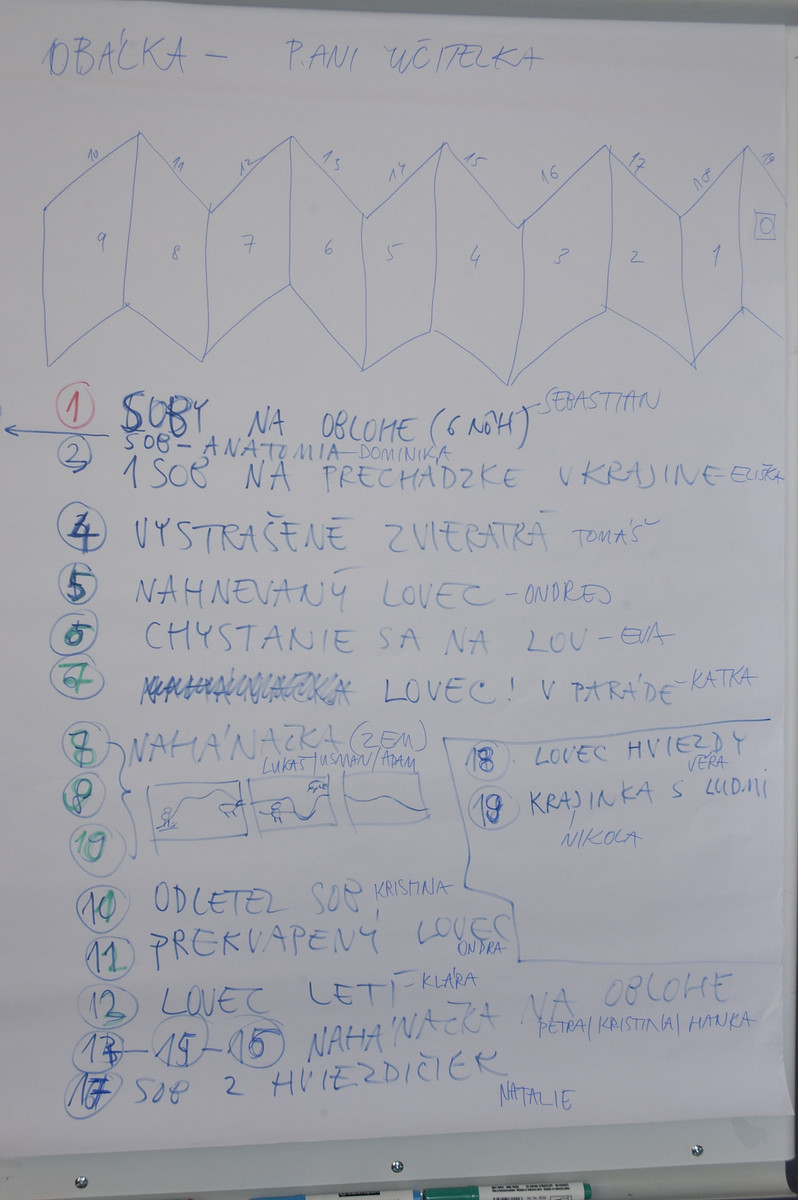 OBÁLKA – PANI UČITELKA
10 11 12 13 14 15 16 17 18 19
9 8 7 6 5 4 3 2 1 0
1 SOBY NA OBLOHE (6 NÔH) – SEBASTIAN
SOB – ANATOMIA – DOMINIKA
2 1 SOB NA PRECHÁDZKE V KRAJINE – ELIŠKA
4 VYSTRAŠENÉ ZVIERATKÁ TOMÁŠ
5 NAHNEVANÝ LOVEC – ONDREJ
6 CHYSTANIE SA NA LOV – EVA
7 LOVEC! V PARÁDE – KATKA
NAHÁŇAČKA (ZEM)
LUKÁŠ/USMAN/ADAM
18 LOVEC HVIEZDY
VERA
19 KRAJINKA S ĽUĎMI
NIKOLA
10 ODLETEL SOB KRISTINA
11 PREKVAPENÝ LOVEC
ONDRA
12 LOVEC LETÍ – KLÁRA
NAHÁŇAČKA NA OBLOHE
PETRA/KRISTINA/HANKA
17 SOB Z HVIEZDIČIEK
NATALIE